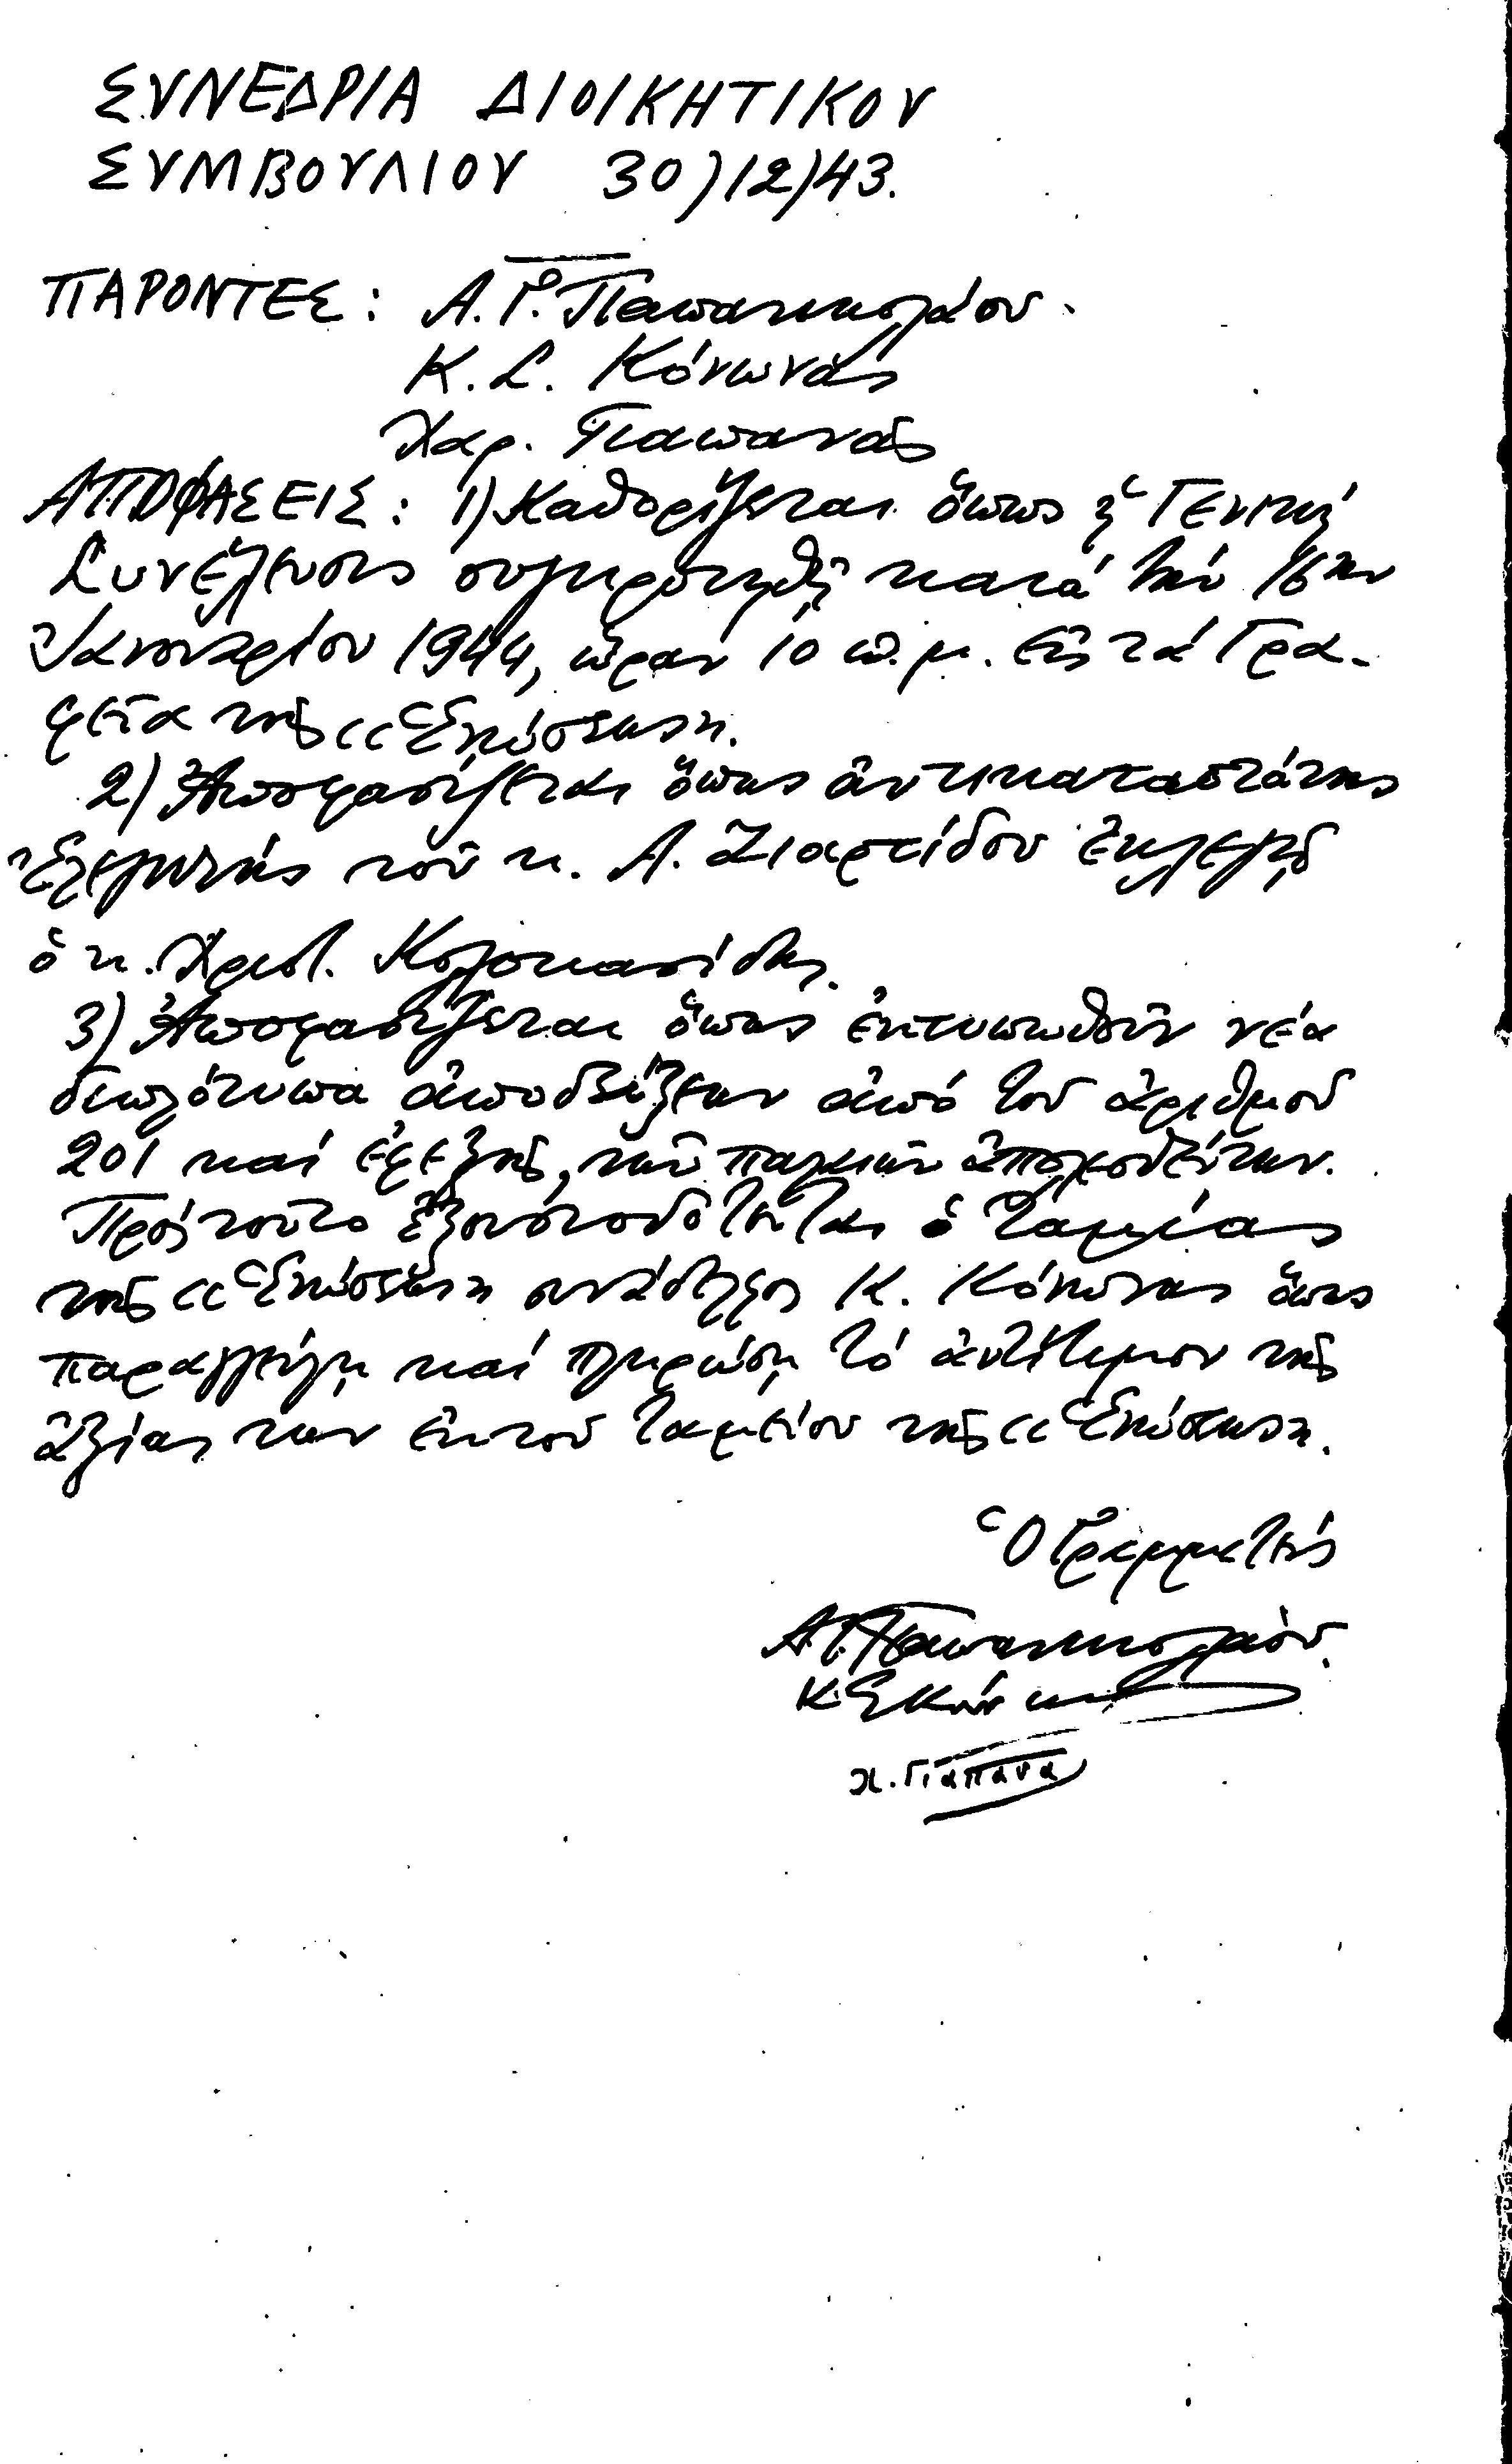 ΣΥΝΕΔΡΙΑ ΔΙΟΙΚΗΤΙΚΟΥ
ΣΥΜΒΟΥΛΙΟΥ 30)12)43.
ΠΑΡΟΝΤΕΣ: Α. Γ. Παπανικολάου
Κ. Σ. Κόνωνας
Χαρ. Γιαπανάς
ΑΠΟΦΑΣΕΙΣ: 1) Καθορίζεται ὅπως ἡ Γενική
Συνέλευσις συγκροτηθῇ κατά τήν 16ην
Ἰανουαρίου 1944, ὥραν 10 π.μ. εἰς τά Γρα-
φεῖα τῆς «Ἑνώσεως».
2) Ἀποφασίζεται ὅπως ἀντικαταστάτης
Ἐλεγκτής τοῦ κ. Α. Ζιαρτίδου ἐκλεγῇ
ὁ κ. Χριστ. Κολοκασίδης.
3) Ἀποφασίζεται ὅπως ἐκτυπωθοῦν νέα
διπλότυπα ἀποδείξεων ἀπό τοῦ ἀριθμοῦ
201 καί ἐφεξῆς, τῶν παλαιῶν
Πρός τοῦτο ἐξουσιοδοτεῖται ὁ Ταμίας
τῆς «Ἑνώσεως» συνάδελφος Κ. Κόνωνας ὅπως
παραγγείλῃ καί πληρώσῃ τό ἀντίτιμον τῆς
ἀξίας των ἐκ τοῦ Ταμείου τῆς «Ἑνώσεως».
Ὁ Γραμματεύς
Α. Γ. Παπανικολάου.
Κ. Σ.
Χ. Γιαπανα